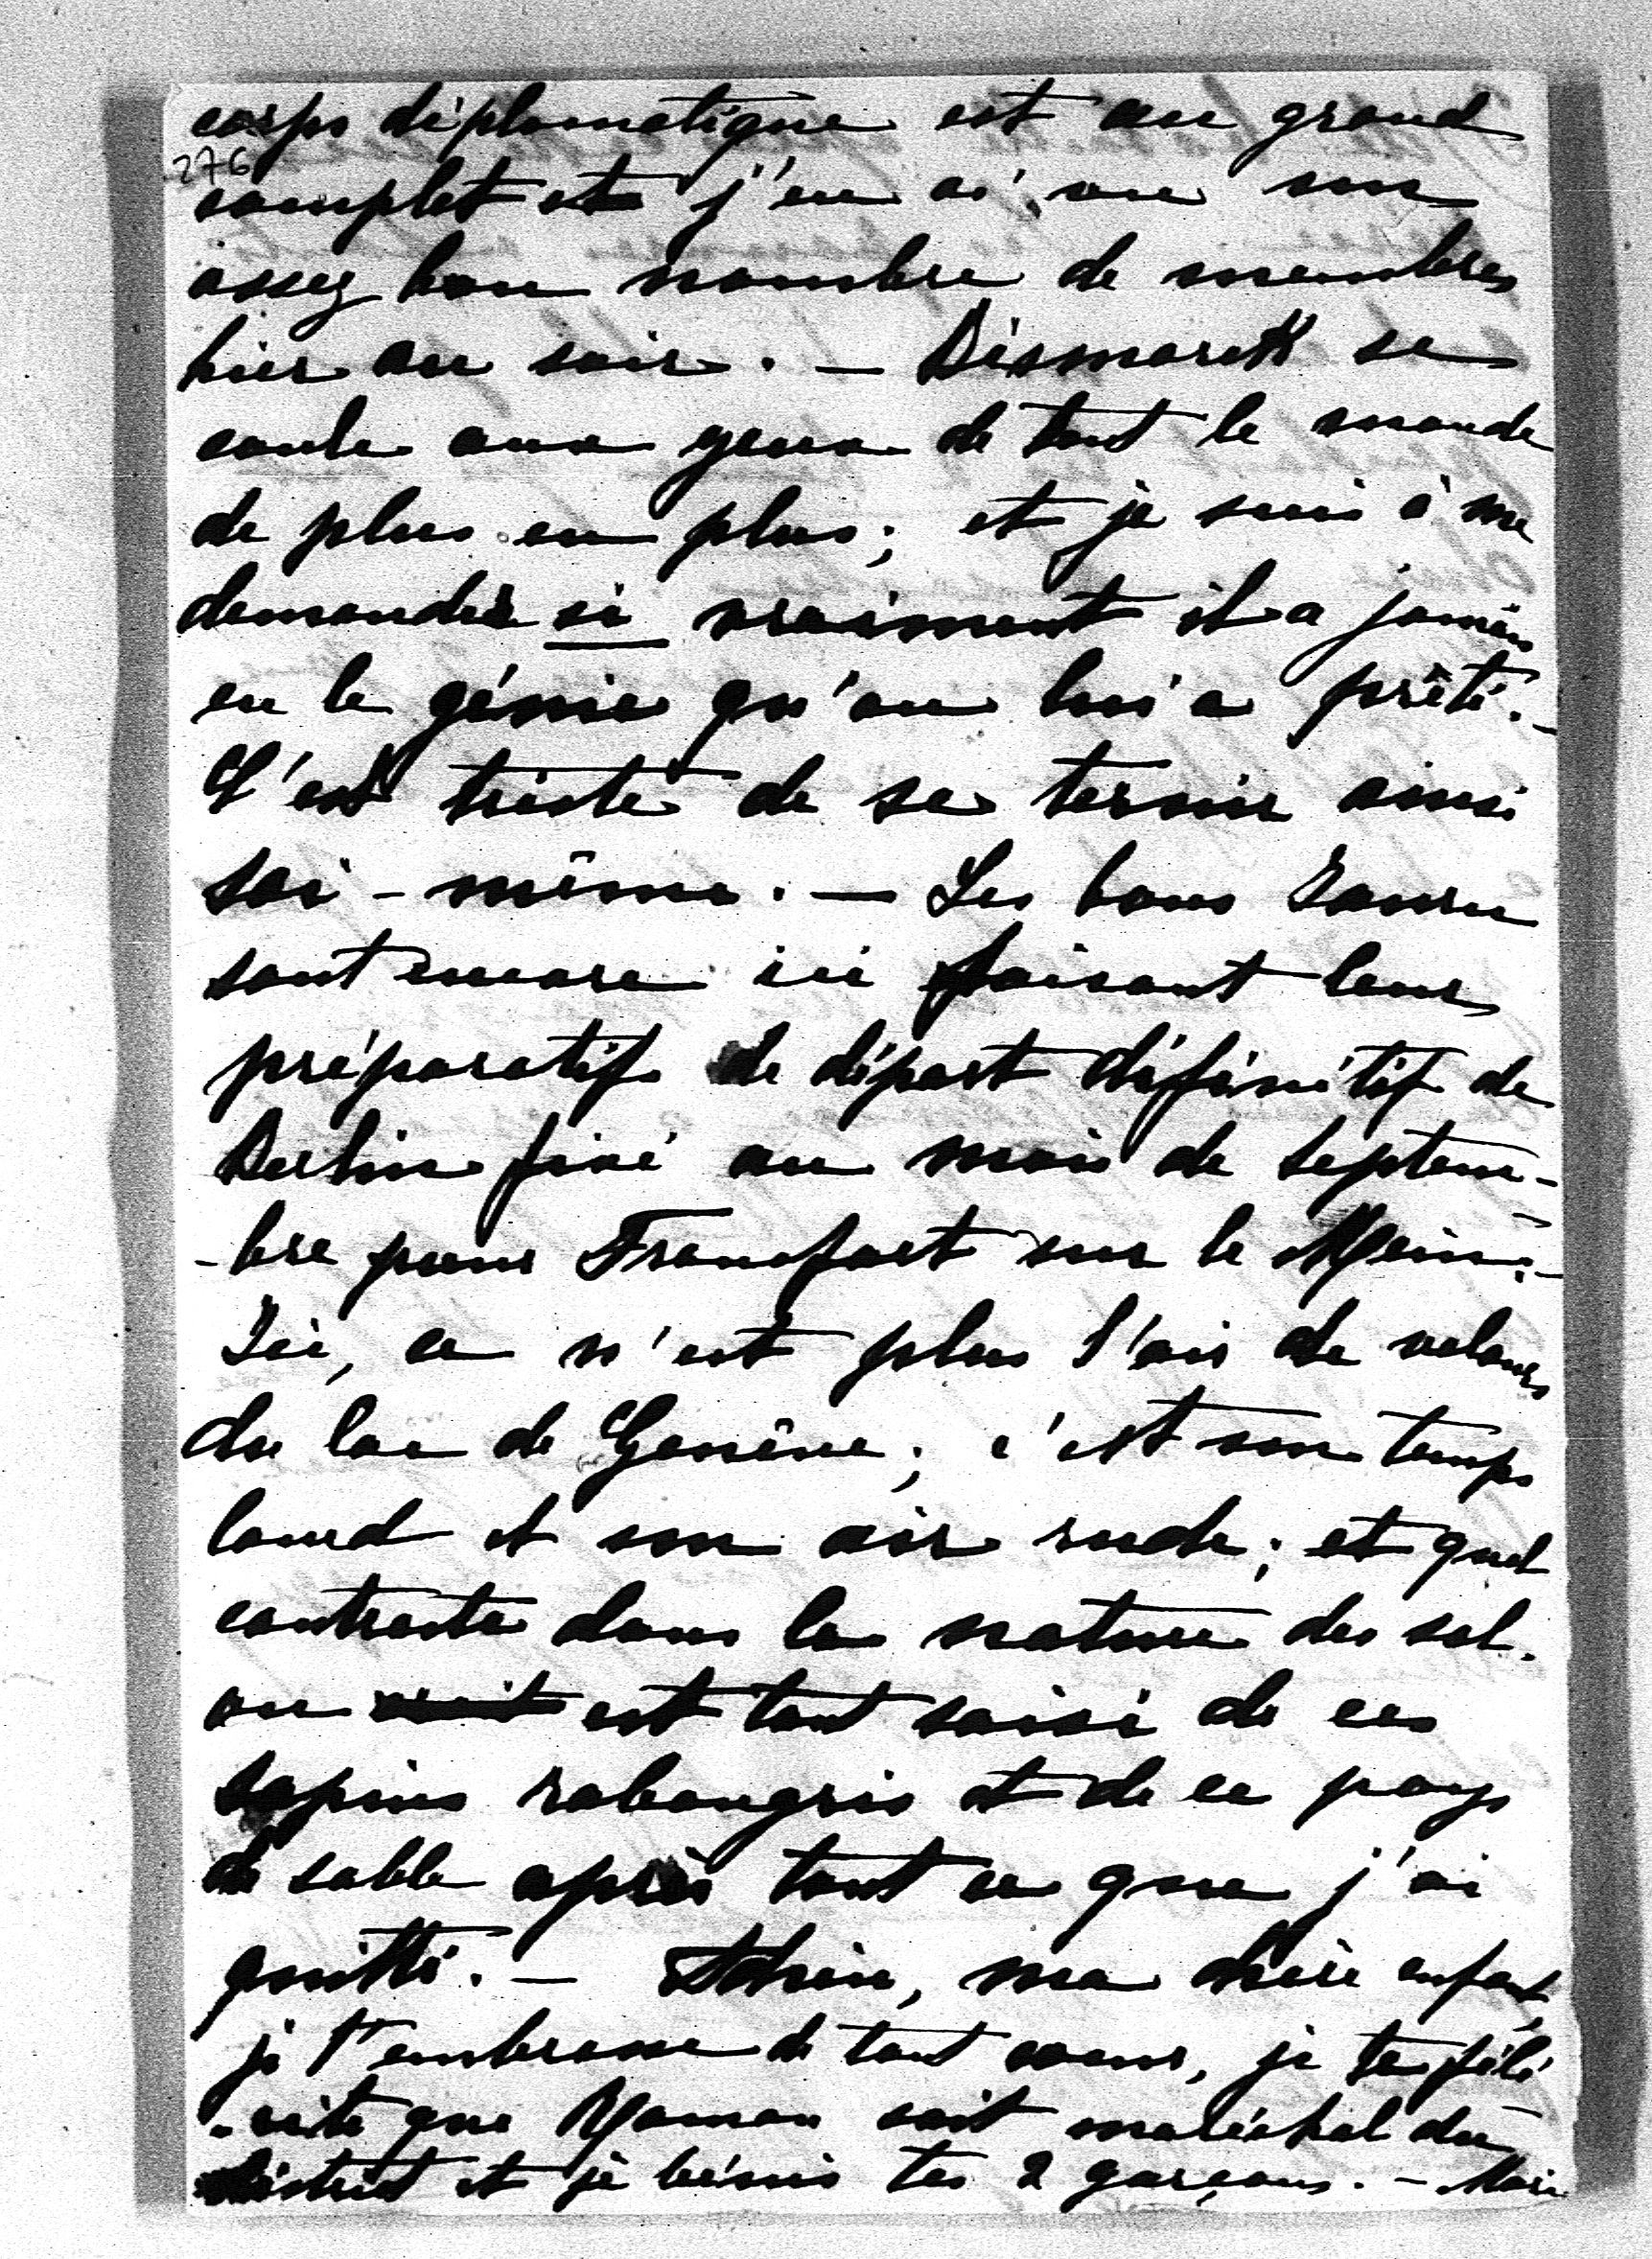 corps diplomatique est au grand
276
complet et j'en ai vu un
assez bon nombre de membres
hier au soir. — Bismarck se
coule aux yeux de tout le monde
de plus en plus; et je suis à me
demander si vraiment il a jamais
eu le génie qu'on lui a prêté. -
C'est triste de se ternir ainsi
soi-même. — Les bons
sont encore ici faisant leurs
préparatifs de départ définitif de
Berlin fixé au mois de Septem-
-bre pour Francfort sur le Mein. -
Ici, ce n'est plus l'air de velours
du lac de Genève; c'est un temps
lourd et un air rude; et quel
contraste dans la nature du sol.
on est tout saisi de ces
sapins rabougris et de ce pays
de sable après tout ce que j'ai
quitté. — Adieu, ma chère enfant,
je t'embrasse de tout cœur, je te féli
-cite que soit maréchal du
district et je bénis tes 2 garçons. - Marie